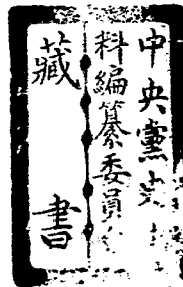 中央黨史
料編纂委員
藏書